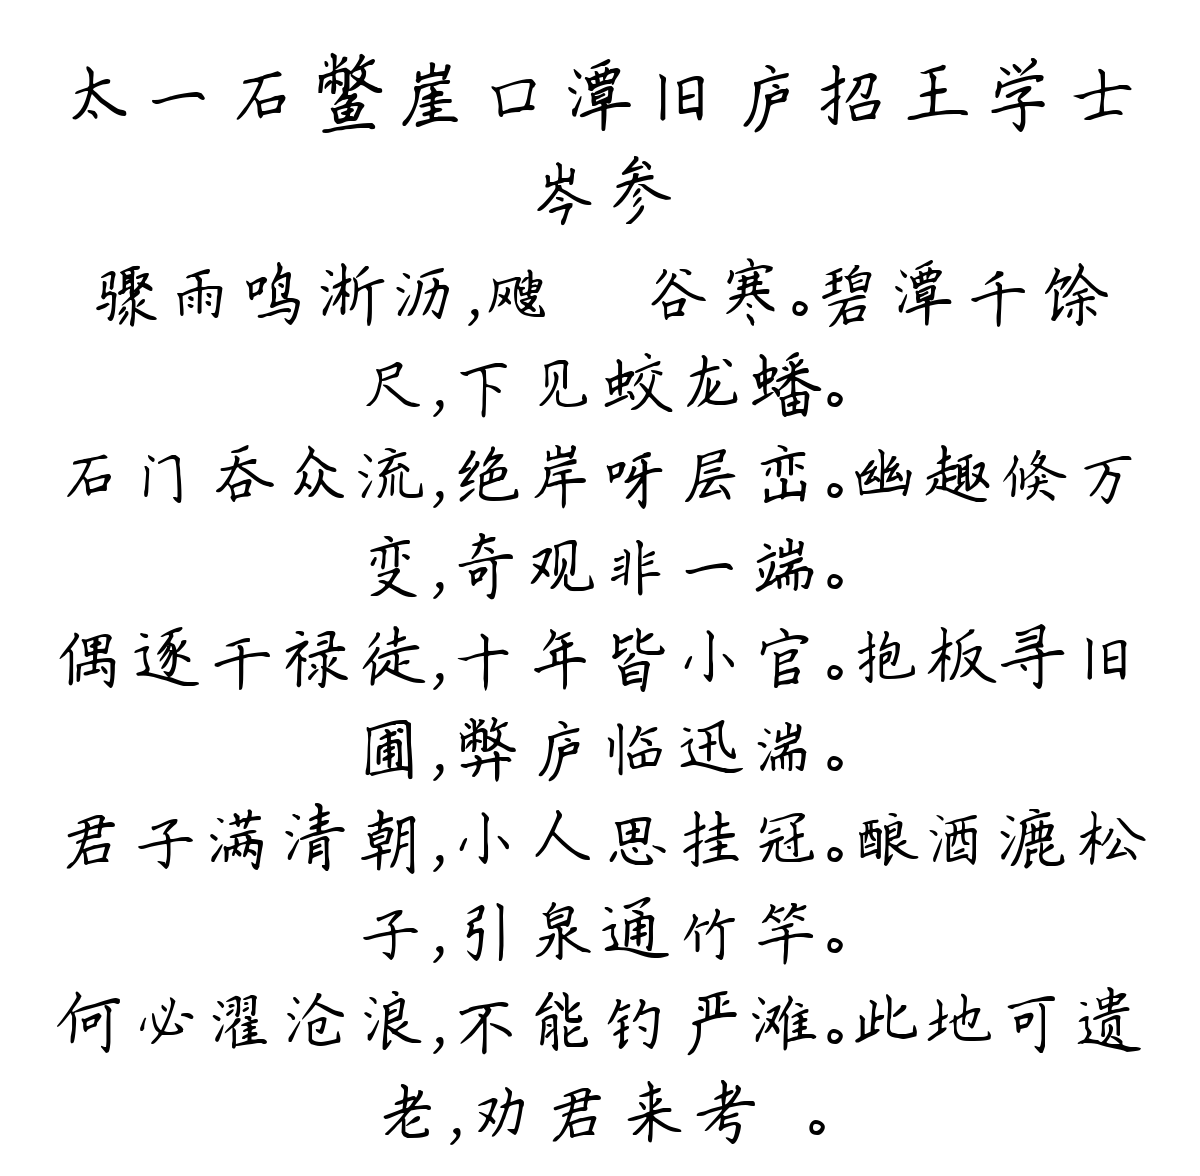 太一石鳖崖口潭旧庐招王学士
岑参
骤雨鸣淅沥,飕 谷寒。碧潭千馀
尺,下见蛟龙蟠。
石门吞众流,绝岸呀层峦。幽趣倏万
变,奇观非一端。
偶逐干禄徒,十年皆小官。抱板寻旧
圃,弊庐临迅湍。
君子满清朝,小人思挂冠。酿酒漉松
子,引泉通竹竿。
何必濯沧浪,不能钓严滩。此地可遗
老,劝君来考 。